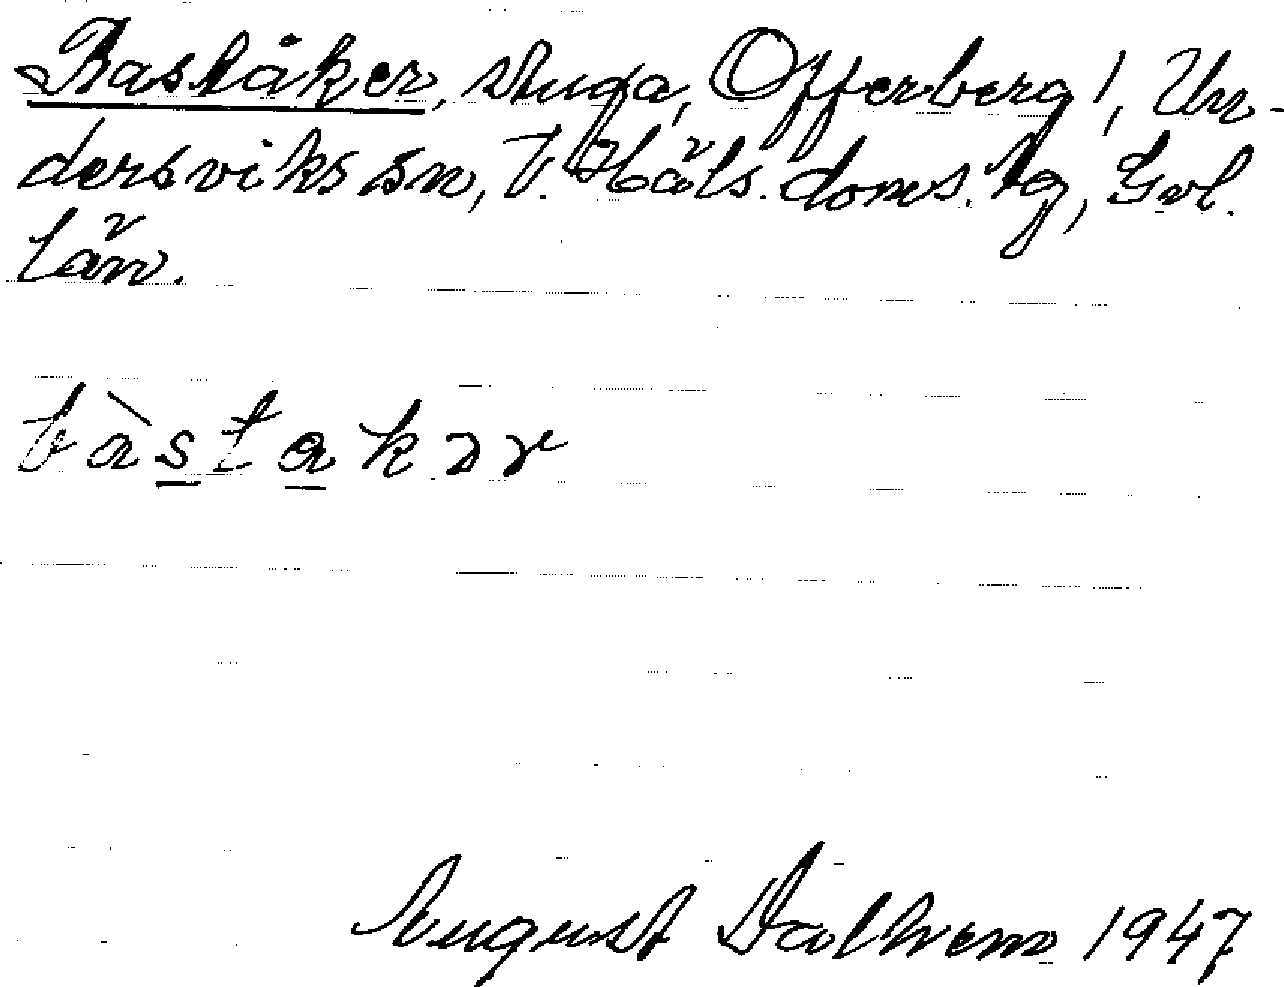 Baståker, stuga, Offerberg 1, Un-
dersviks sn, V. Häls. doms. hg, Gvl.
län.
bàstakər
August Dalhem 1947